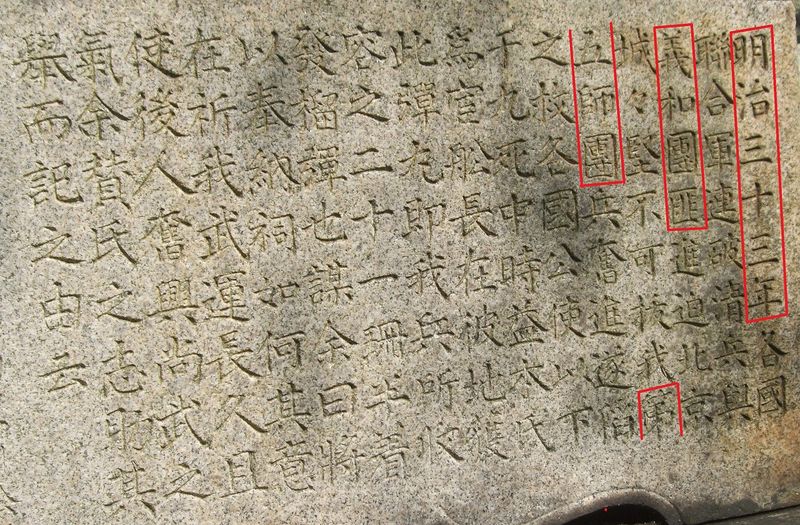 明治三十三年各國
聯合軍連破清兵與
義和團匪進迫北京
城々堅不可抜我第
五師團兵奮進遂陷
之救各國公使以下
千九死中時益本氏
爲官船長在彼地獲
此彈丸即我兵所收
容之二十一珊半着
發榴彈也謀余曰將
以奉納祠如何其意
在祈我武運長久且
使後人奮興尚武之
氣余賛氏之志助其
擧而記之由云